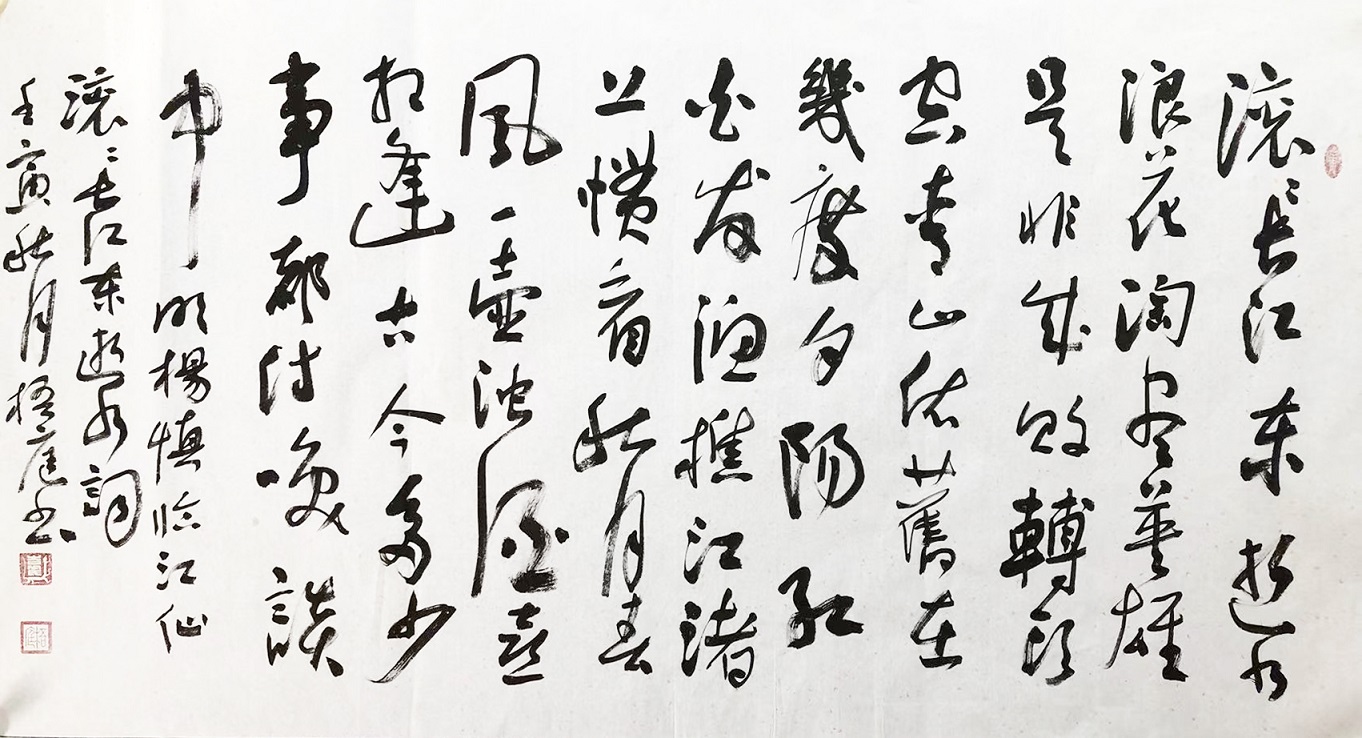 滚〻长江东逝水
浪花淘尽英雄
是非成败轉头
空青山依舊在
幾度夕陽红
白发渔樵江渚
上惯看秋月春
風一壺浊酒喜
相逢古今多少
事都付咲談
中明楊慎临江仙
滚〻长江东逝水詞
壬寅秋月梧庭书